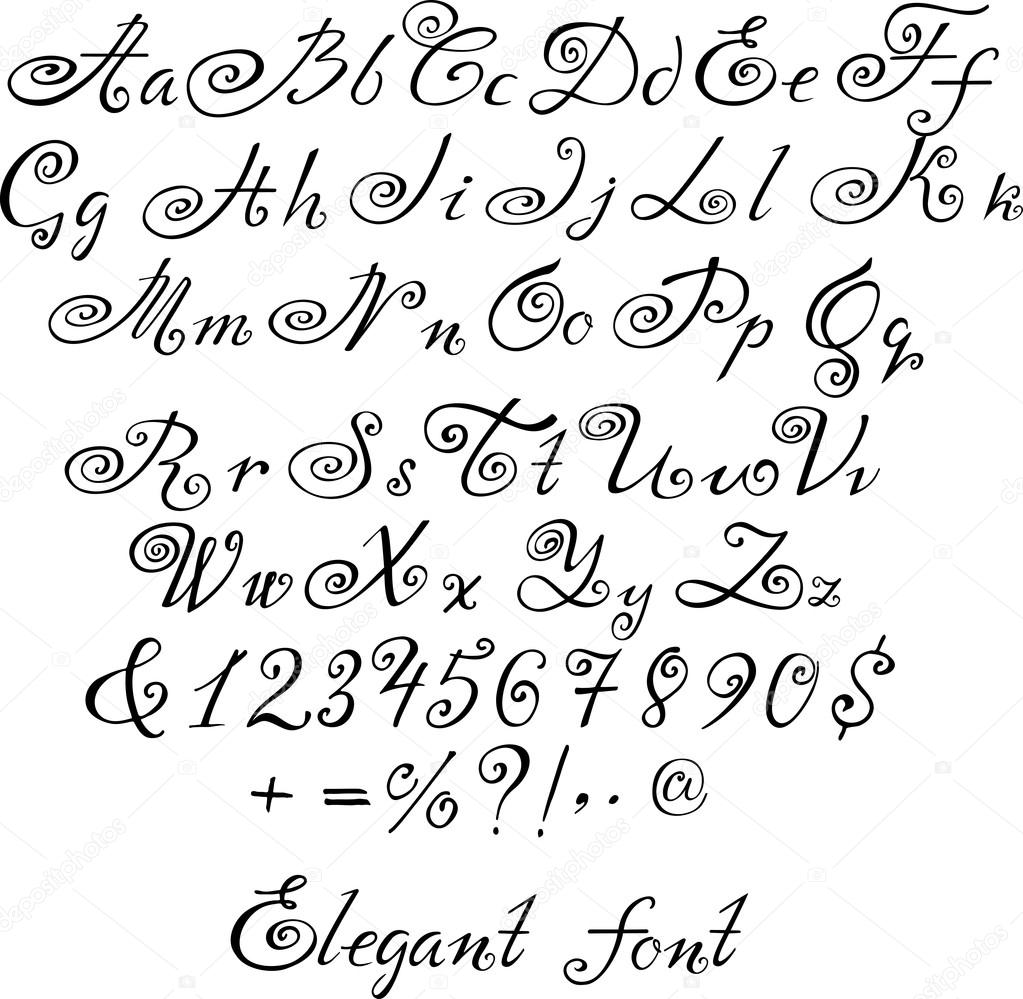 Aa Bb Cc Dd Ee Ff
Gg Hh Ii Jj Ll Kk
Mm Nn Oo Pp Qq
Rr Ss Tt Uu Vv
Ww Xx Yy Zz
& 1 2 3 4 5 6 7 8 9 0 $
+ = % ? ! , . @
Elegant font